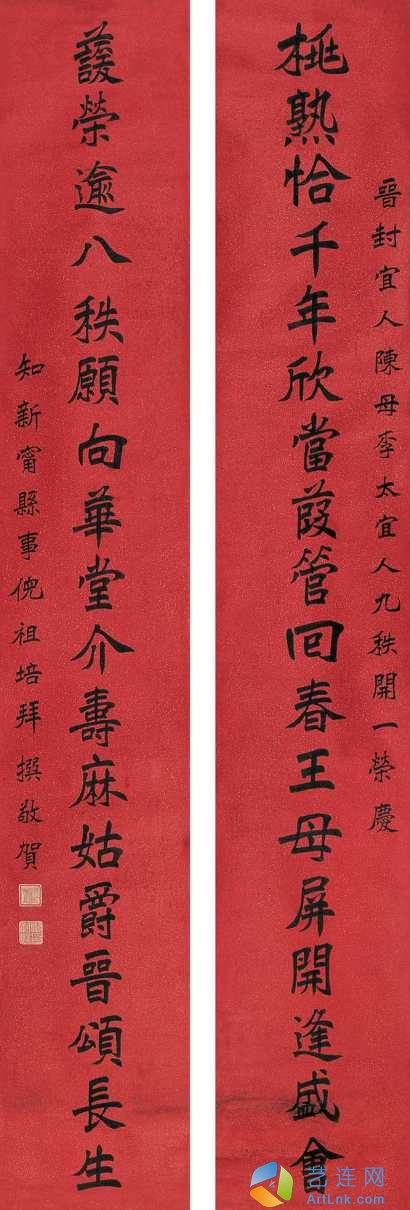 晉封宜人陳母李太宜人九秩開一榮慶
桃熟恰千年欣當葭管回春王母屏開逢盛會
蘐榮逾八秩願向華堂介壽麻姑爵晉頌長生
知新甯縣事倪祖培拜撰敬賀
艺连网
ArtLnk.com